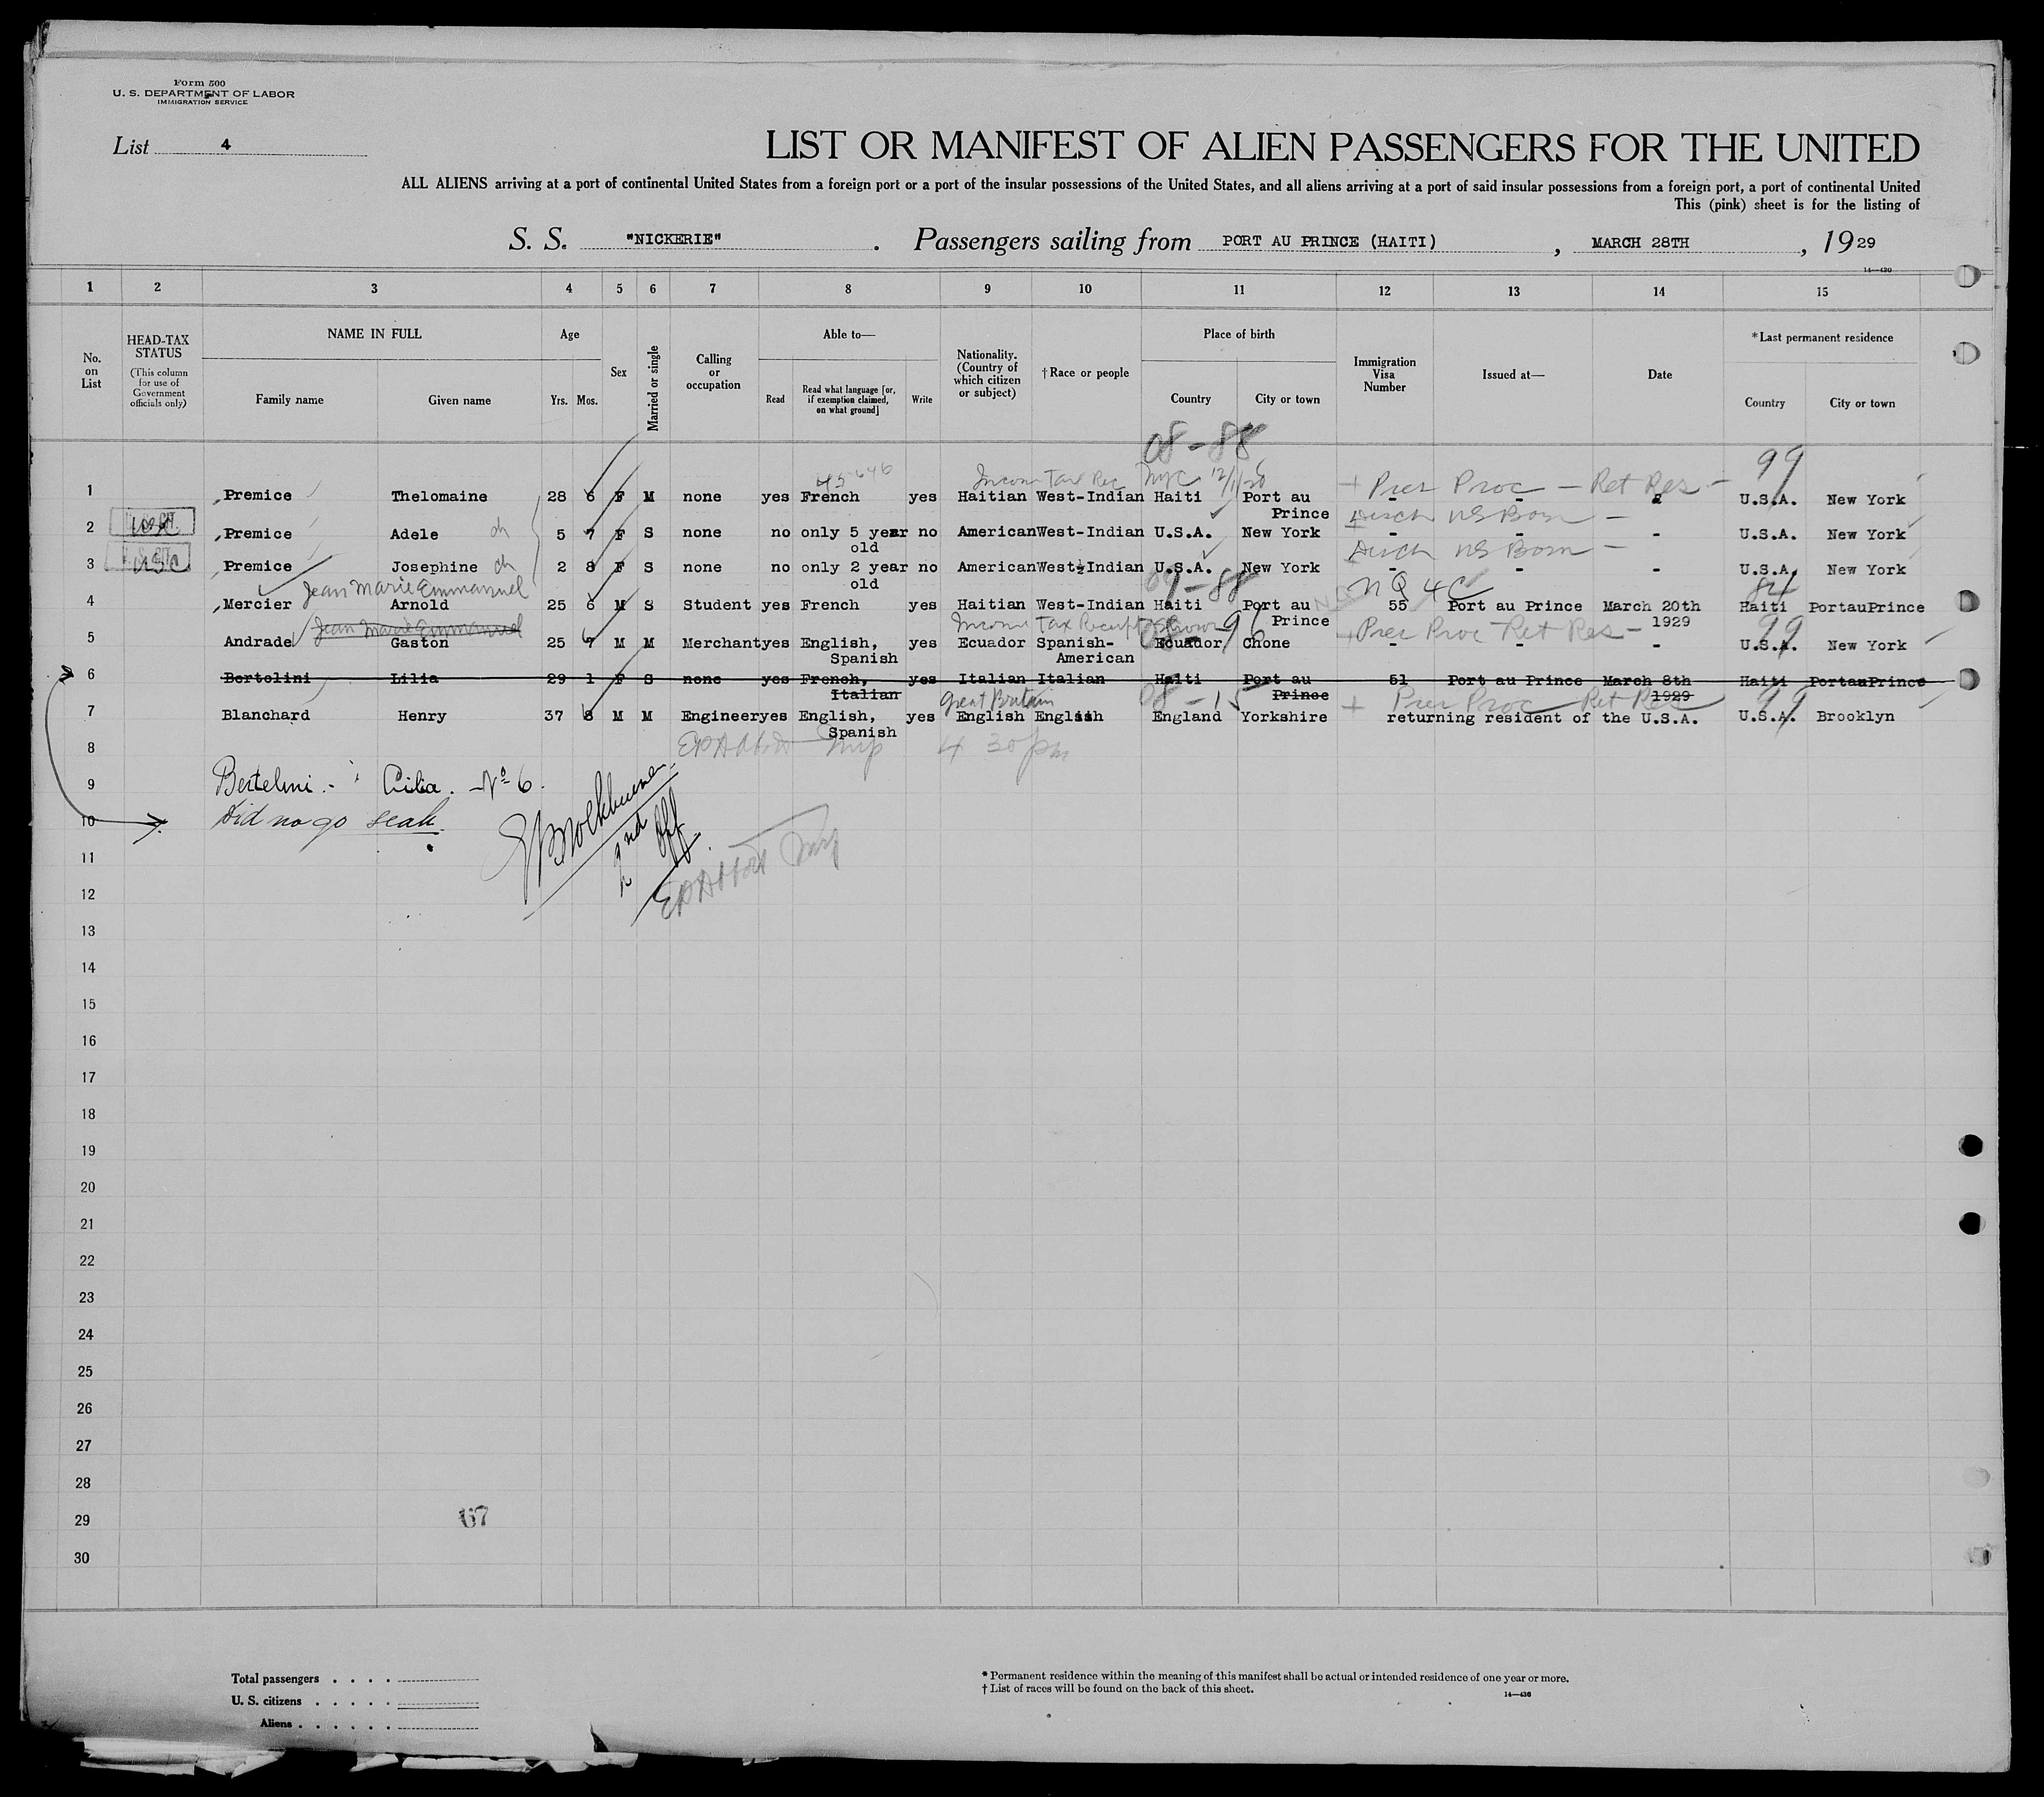 Form 500
U. S. DEPARTMENT OF LABOR
IMMIGRATION SERVICE
List 4
LIST OR MANIFEST OF ALIEN PASSENGERS FOR THE UNITED
ALL ALIENS arriving at a port of continental United States from a foreign port or a port of the insular possessions of the United States, and all aliens arriving at a port of said insular possessions from a foreign port, a port of continental United
This (pink) sheet is for the listing of
S. S. "NICKERIE" . Passengers sailing from PORT AU PRINCE (HAITI) , MARCH 28TH , 1929
14—430
1 2 3 4 5 6 7 8 9 10 11 12 13 14 15
No. on List
HEAD-TAX STATUS
(This column for use of Government officials only)
NAME IN FULL
Family name Given name
Age
Yrs. Mos.
Sex
Married or single
Calling or occupation
Able to—
Read
Read what language [or, if exemption claimed, on what ground]
Write
Nationality. (Country of which citizen or subject)
†Race or people
Place of birth
Country City or town
Immigration Visa Number
Issued at—
Date
*Last permanent residence
Country City or town
08-88
Income Tax Rec NYC + Prev Proc - Ret Res - 99
1 Premice Thelomaine 28 6 F M none yes French yes Haitian West-Indian Haiti Port au Prince - - U.S.A. New York
Disch US Born -
2 USC Premice Adele ch 5 7 F S none no only 5 year old no American West-Indian U.S.A. New York - - - U.S.A. New York
Disch US Born -
3 USC Premice Josephine ch 2 8 F S none no only 2 year old no American West-Indian U.S.A. New York - - - U.S.A. New York
Jean Marie Emmanuel 09-88 NQ 4C
4 Mercier Arnold 25 6 M S Student yes French yes Haitian West-Indian Haiti Port au Prince 55 Port au Prince March 20th 1929 Haiti PortauPrince
Jean Marie Emmanuel Income Tax Receipt Shown + Prev Proc - Ret Res - 99
5 Andrade Gaston 25 7 M M Merchant yes English, Spanish yes Ecuador Spanish-American Ecuador Chone - - - U.S.A. New York
6 Bertolini Lilia 29 1 F S none yes French, Italian yes Italian Italian Haiti Port au Prince 51 Port au Prince March 8th 1929 Haiti PortauPrince
Great Britain + Prev Proc Ret Res 99
7 Blanchard Henry 37 8 M M Engineer yes English, Spanish yes English English England Yorkshire returning resident of the U.S.A. U.S.A. Brooklyn
8 EPAbbott Insp 4 30 pm
9 Bertelini Cilia. No 6.
10 Did no go seak.
2nd Off
EPAbbott Insp
11
12
13
14
15
16
17
18
19
20
21
22
23
24
25
26
27
28
29
30
67
Total passengers . . . .
U. S. citizens . . . . .
Aliens . . . . . .
* Permanent residence within the meaning of this manifest shall be actual or intended residence of one year or more.
† List of races will be found on the back of this sheet.
14—430